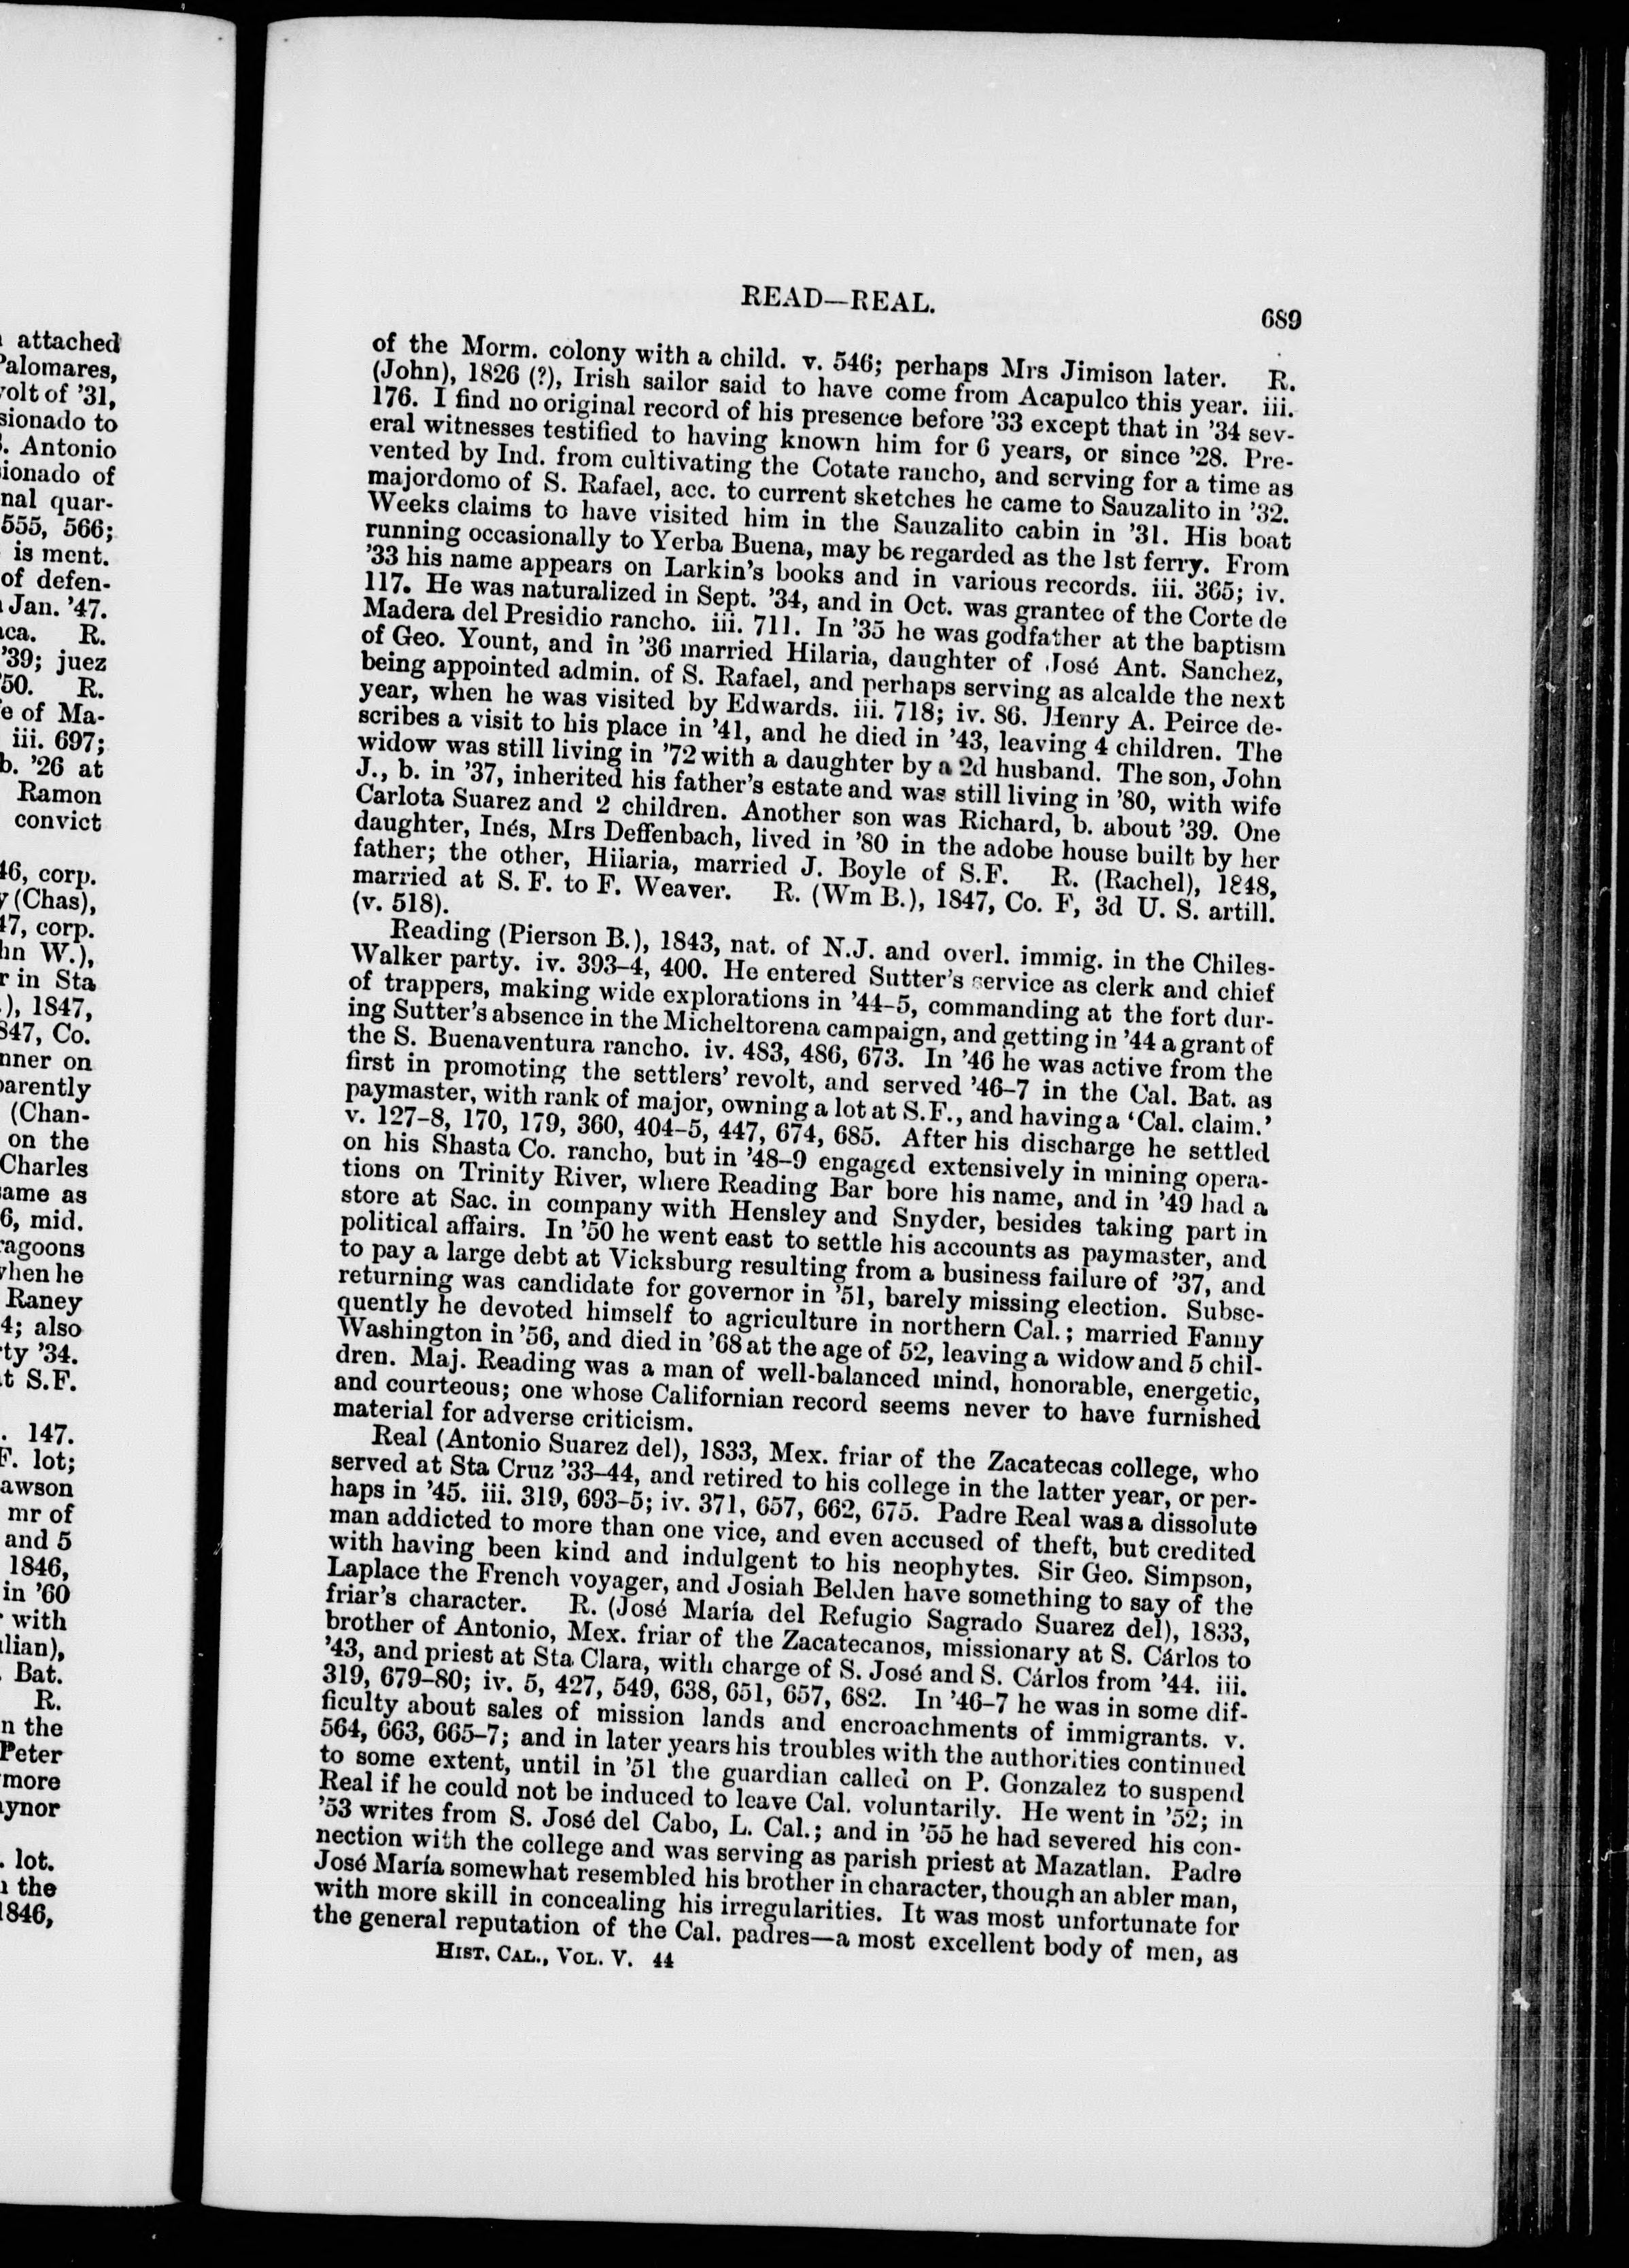 attached
Palomares,
volt of '31,
sionado to
. Antonio
sionado of
nal quar-
555, 566;
is ment.
of defen-
Jan. '47.
aca. R.
'39; juez
'50. R.
e of Ma-
iii. 697;
b. '26 at
Ramon
convict
46, corp.
(Chas),
47, corp.
hn W.),
r in Sta
), 1847,
847, Co.
nner on
parently
(Chan-
on the
Charles
same as
6, mid.
ragoons
when he
Raney
4; also
ty '34.
at S.F.
. 147.
F. lot;
awson
mr of
and 5
1846,
in '60
with
lian),
Bat.
R.
n the
Peter
more
aynor
. lot.
the
1846,
READ—REAL. 689
of the Morm. colony with a child. v. 546; perhaps Mrs Jimison later. R.
(John), 1826 (?), Irish sailor said to have come from Acapulco this year. iii.
176. I find no original record of his presence before '33 except that in '34 sev-
eral witnesses testified to having known him for 6 years, or since '28. Pre-
vented by Ind. from cultivating the Cotate rancho, and serving for a time as
majordomo of S. Rafael, acc. to current sketches he came to Sauzalito in '32.
Weeks claims to have visited him in the Sauzalito cabin in '31. His boat
running occasionally to Yerba Buena, may be regarded as the 1st ferry. From
'33 his name appears on Larkin's books and in various records. iii. 365; iv.
117. He was naturalized in Sept. '34, and in Oct. was grantee of the Corte de
Madera del Presidio rancho. iii. 711. In '35 he was godfather at the baptism
of Geo. Yount, and in '36 married Hilaria, daughter of José Ant. Sanchez,
being appointed admin. of S. Rafael, and perhaps serving as alcalde the next
year, when he was visited by Edwards. iii. 718; iv. 86. Henry A. Peirce de-
scribes a visit to his place in '41, and he died in '43, leaving 4 children. The
widow was still living in '72 with a daughter by a 2d husband. The son, John
J., b. in '37, inherited his father's estate and was still living in '80, with wife
Carlota Suarez and 2 children. Another son was Richard, b. about '39. One
daughter, Inés, Mrs Deffenbach, lived in '80 in the adobe house built by her
father; the other, Hilaria, married J. Boyle of S.F. R. (Rachel), 1848,
married at S. F. to F. Weaver. R. (Wm B.), 1847, Co. F, 3d U. S. artill.
(v. 518).
Reading (Pierson B.), 1843, nat. of N.J. and overl. immig. in the Chiles-
Walker party. iv. 393-4, 400. He entered Sutter's service as clerk and chief
of trappers, making wide explorations in '44-5, commanding at the fort dur-
ing Sutter's absence in the Micheltorena campaign, and getting in '44 a grant of
the S. Buenaventura rancho. iv. 483, 486, 673. In '46 he was active from the
first in promoting the settlers' revolt, and served '46-7 in the Cal. Bat. as
paymaster, with rank of major, owning a lot at S.F., and having a 'Cal. claim.'
v. 127-8, 170, 179, 360, 404-5, 447, 674, 685. After his discharge he settled
on his Shasta Co. rancho, but in '48-9 engaged extensively in mining opera-
tions on Trinity River, where Reading Bar bore his name, and in '49 had a
store at Sac. in company with Hensley and Snyder, besides taking part in
political affairs. In '50 he went east to settle his accounts as paymaster, and
to pay a large debt at Vicksburg resulting from a business failure of '37, and
returning was candidate for governor in '51, barely missing election. Subse-
quently he devoted himself to agriculture in northern Cal.; married Fanny
Washington in '56, and died in '68 at the age of 52, leaving a widow and 5 chil-
dren. Maj. Reading was a man of well-balanced mind, honorable, energetic,
and courteous; one whose Californian record seems never to have furnished
material for adverse criticism.
Real (Antonio Suarez del), 1833, Mex. friar of the Zacatecas college, who
served at Sta Cruz '33-44, and retired to his college in the latter year, or per-
haps in '45. iii. 319, 693-5; iv. 371, 657, 662, 675. Padre Real was a dissolute
man addicted to more than one vice, and even accused of theft, but credited
with having been kind and indulgent to his neophytes. Sir Geo. Simpson,
Laplace the French voyager, and Josiah Belden have something to say of the
friar's character. R. (José María del Refugio Sagrado Suarez del), 1833,
brother of Antonio, Mex. friar of the Zacatecanos, missionary at S. Cárlos to
'43, and priest at Sta Clara, with charge of S. José and S. Cárlos from '44. iii.
319, 679-80; iv. 5, 427, 549, 638, 651, 657, 682. In '46-7 he was in some dif-
ficulty about sales of mission lands and encroachments of immigrants. v.
564, 663, 665-7; and in later years his troubles with the authorities continued
to some extent, until in '51 the guardian called on P. Gonzalez to suspend
Real if he could not be induced to leave Cal. voluntarily. He went in '52; in
'53 writes from S. José del Cabo, L. Cal.; and in '55 he had severed his con-
nection with the college and was serving as parish priest at Mazatlan. Padre
José María somewhat resembled his brother in character, though an abler man,
with more skill in concealing his irregularities. It was most unfortunate for
the general reputation of the Cal. padres—a most excellent body of men, as
HIST. CAL., VOL. V. 44